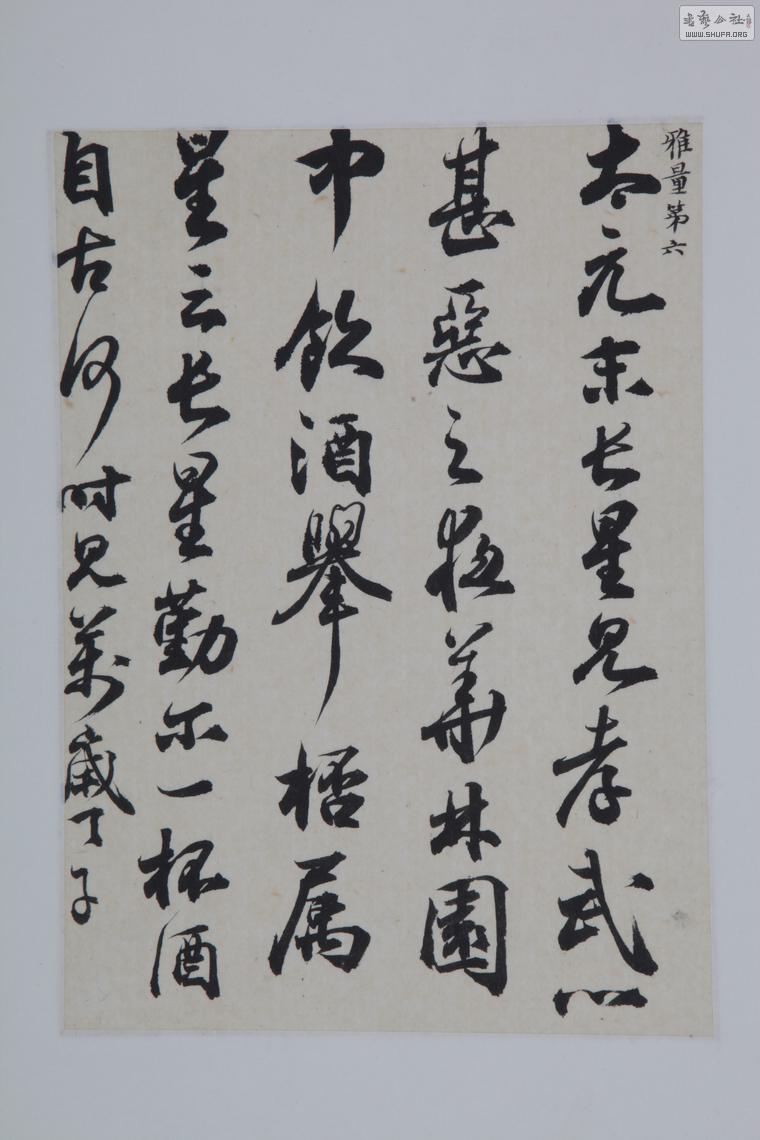 雅量第六
太元末长星见孝武心
甚惡之夜華林園
中飲酒舉桮属
星云长星勸尔一杯酒
自古何时見萬歲天子
書藝公社
WWW.SHUFA.ORG